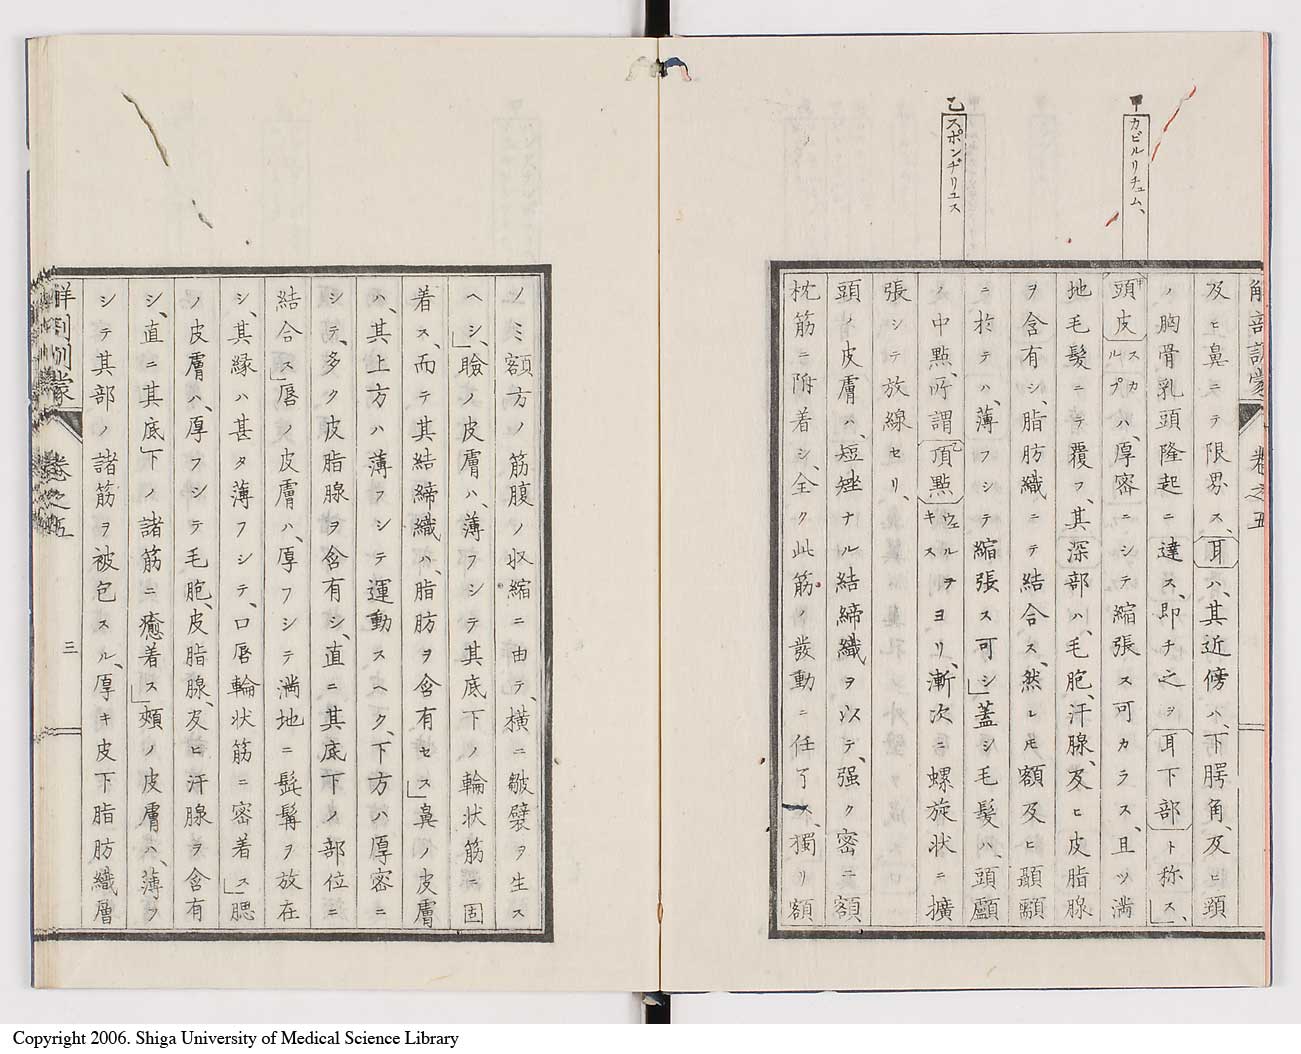 甲
カピルリチュム、
乙
スポンヂリユス
解剖訓蒙 卷之五
及ヒ鼻ニテ限界ス、耳ハ、其近傍ハ、下腭角、及ヒ頸
ノ胸骨乳頭隆起ニ達ス、即チ之ヲ耳下部ト称ス、」
頭皮スカルプハ、厚密ニシテ縮張ス可カラス、且ツ満
地毛髮ニテ覆フ、其深部ハ、毛胞、汗腺、及ヒ皮脂腺
ヲ含有シ、脂肪織ニテ結合ス、然レ𪜈額及ヒ顳顬
ニ於テハ、薄フシテ縮張ス可シ」蓋シ毛髮ハ、頭顱
ノ中點、所謂頂點ウェルヲキスヨリ、漸次ニ螺旋状ニ擴
張シテ放線セリ、
頭ノ皮膚ハ、短矬ナル結締織ヲ以テ、强ク密ニ額、
枕筋ニ附着シ、全ク此筋ノ發動ニ任了ス、獨リ額
ノミ額方ノ筋腹ノ収縮ニ由テ、横ニ皺襞ヲ生ス
ヘシ」瞼ノ皮膚ハ、薄フシテ其底下ノ輪状筋ニ固
着ス、而テ其結締織ハ、脂肪ヲ含有セス」鼻ノ皮膚
ハ、其上方ハ薄フシテ運動スヘク、下方ハ厚密ニ
シテ、多ク皮脂腺ヲ含有シ、直ニ其底下ノ部位ニ
結合ス」唇ノ皮膚ハ、厚フシテ満地ニ髭髯ヲ放在
シ、其縁ハ甚タ薄フシテ、口唇輪状筋ニ密着ス」腮
ノ皮膚ハ、厚フシテ毛胞、皮脂腺、及ヒ汗腺ヲ含有
シ、直ニ其底下ノ諸筋ニ癒着ス」頰ノ皮膚ハ、薄フ
シテ其部ノ諸筋ヲ被包スル、厚キ皮下脂肪織層
卷之五 三
Copyright 2006. Shiga University of Medical Science Library